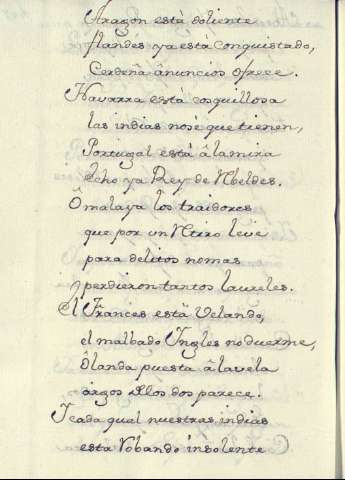 Aragon está doliente
flandes ya está conquistado,
Cerdeña ânuncios ofrece.
Navarra está cosquillosa
las indias nosè que tienen,
Portugal está âlamira
hecho ya Rey de Rbeldes.
Ô malaya los traidores
que por un Rtiro leve
para delitos nomas
perdieron tantos laureles.
El Frances està Velando,
el malbado Ingles no duerme,
Ôlanda puesta âlavela
argos âllos dos parece.
I cada qual nuestras indias
esta Robando insolente